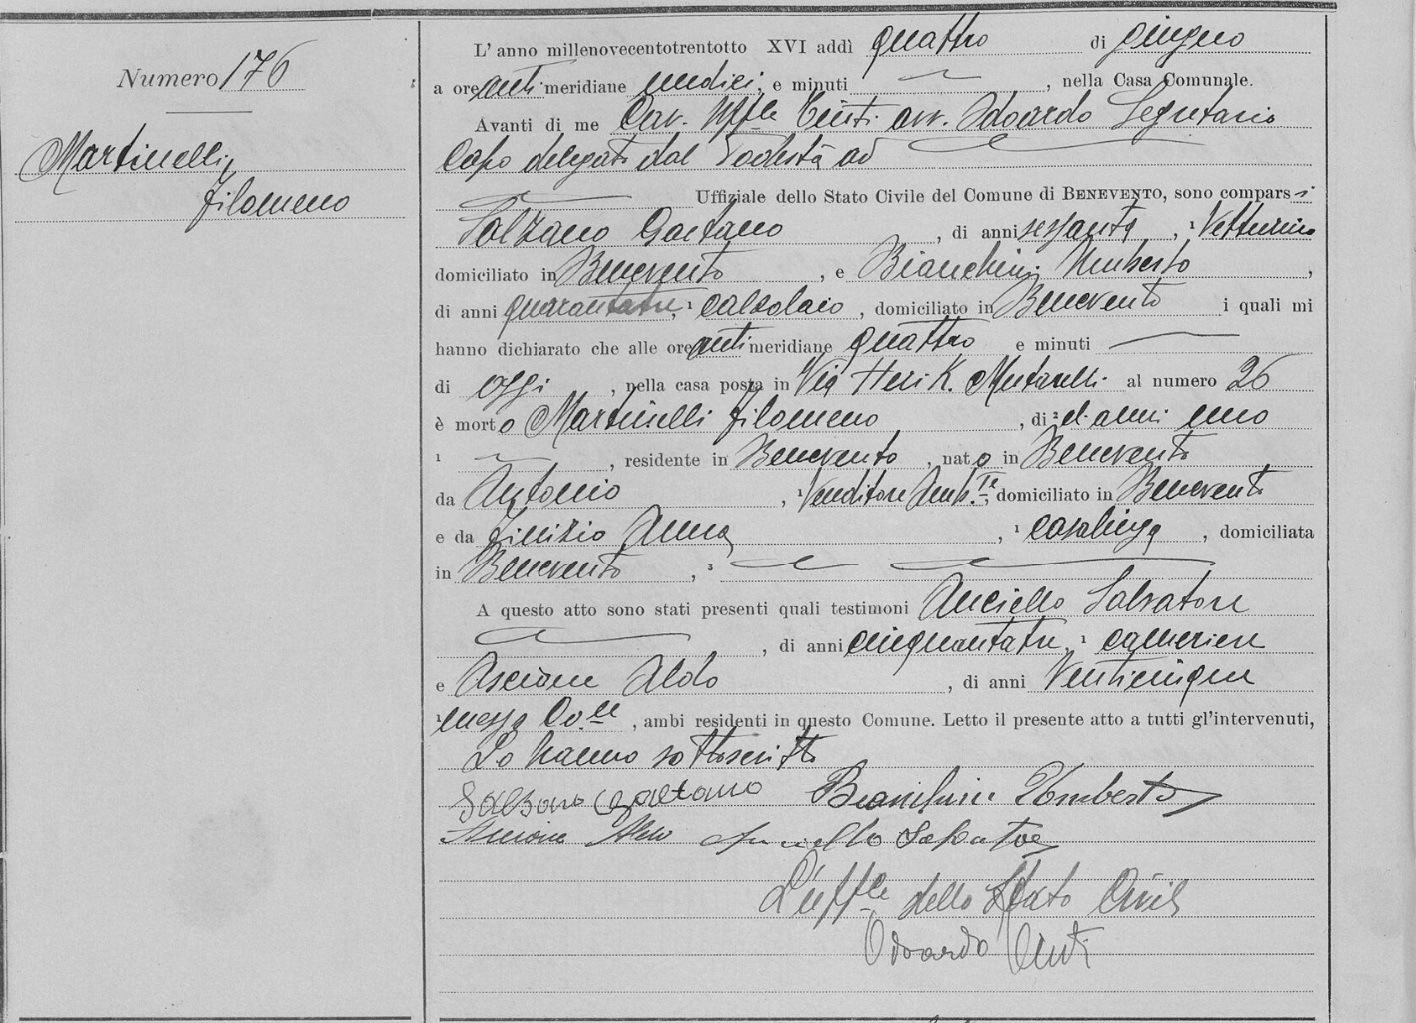 Numero 176
Martinelli
Filomeno
L'anno millenovecentotrentotto XVI addì quattro di giugno
a ore anti meridiane undici, e minuti , nella Casa Comunale.
Avanti di me Cav. Uffle avv. Odoardo Segretario
Capo delegato dal Podestà ad
Uffiziale dello Stato Civile del Comune di BENEVENTO, sono comparsi
Salzano Gaetano, di anni sessanta, 1 Vetturino
domiciliato in Benevento, e Bianchini Umberto,
di anni quarantatre, 1 calzolaio, domiciliato in Benevento i quali mi
hanno dichiarato che alle ore anti meridiane quattro e minuti
di oggi, nella casa posta in Via Mutarelli al numero 26
è morto Martinelli Filomeno, di 2 d'anni uno
1 , residente in Benevento, nato in Benevento
da Antonio, 1 Venditore Amb.te, domiciliato in Benevento
e da Anna, 1 casalinga, domiciliata
in Benevento, 3
A questo atto sono stati presenti quali testimoni Auciello Salvatore
, di anni cinquantatre, 1 cameriere
e Ascione Aldo, di anni Venticinque
1 messo Co.le, ambi residenti in questo Comune. Letto il presente atto a tutti gl'intervenuti,
Lo hanno sottoscritto
Salzano Gaetano Bianchini Umberto
Ascione Aldo Auciello Salvatore
L'uffle dello Stato Civile
Odoardo